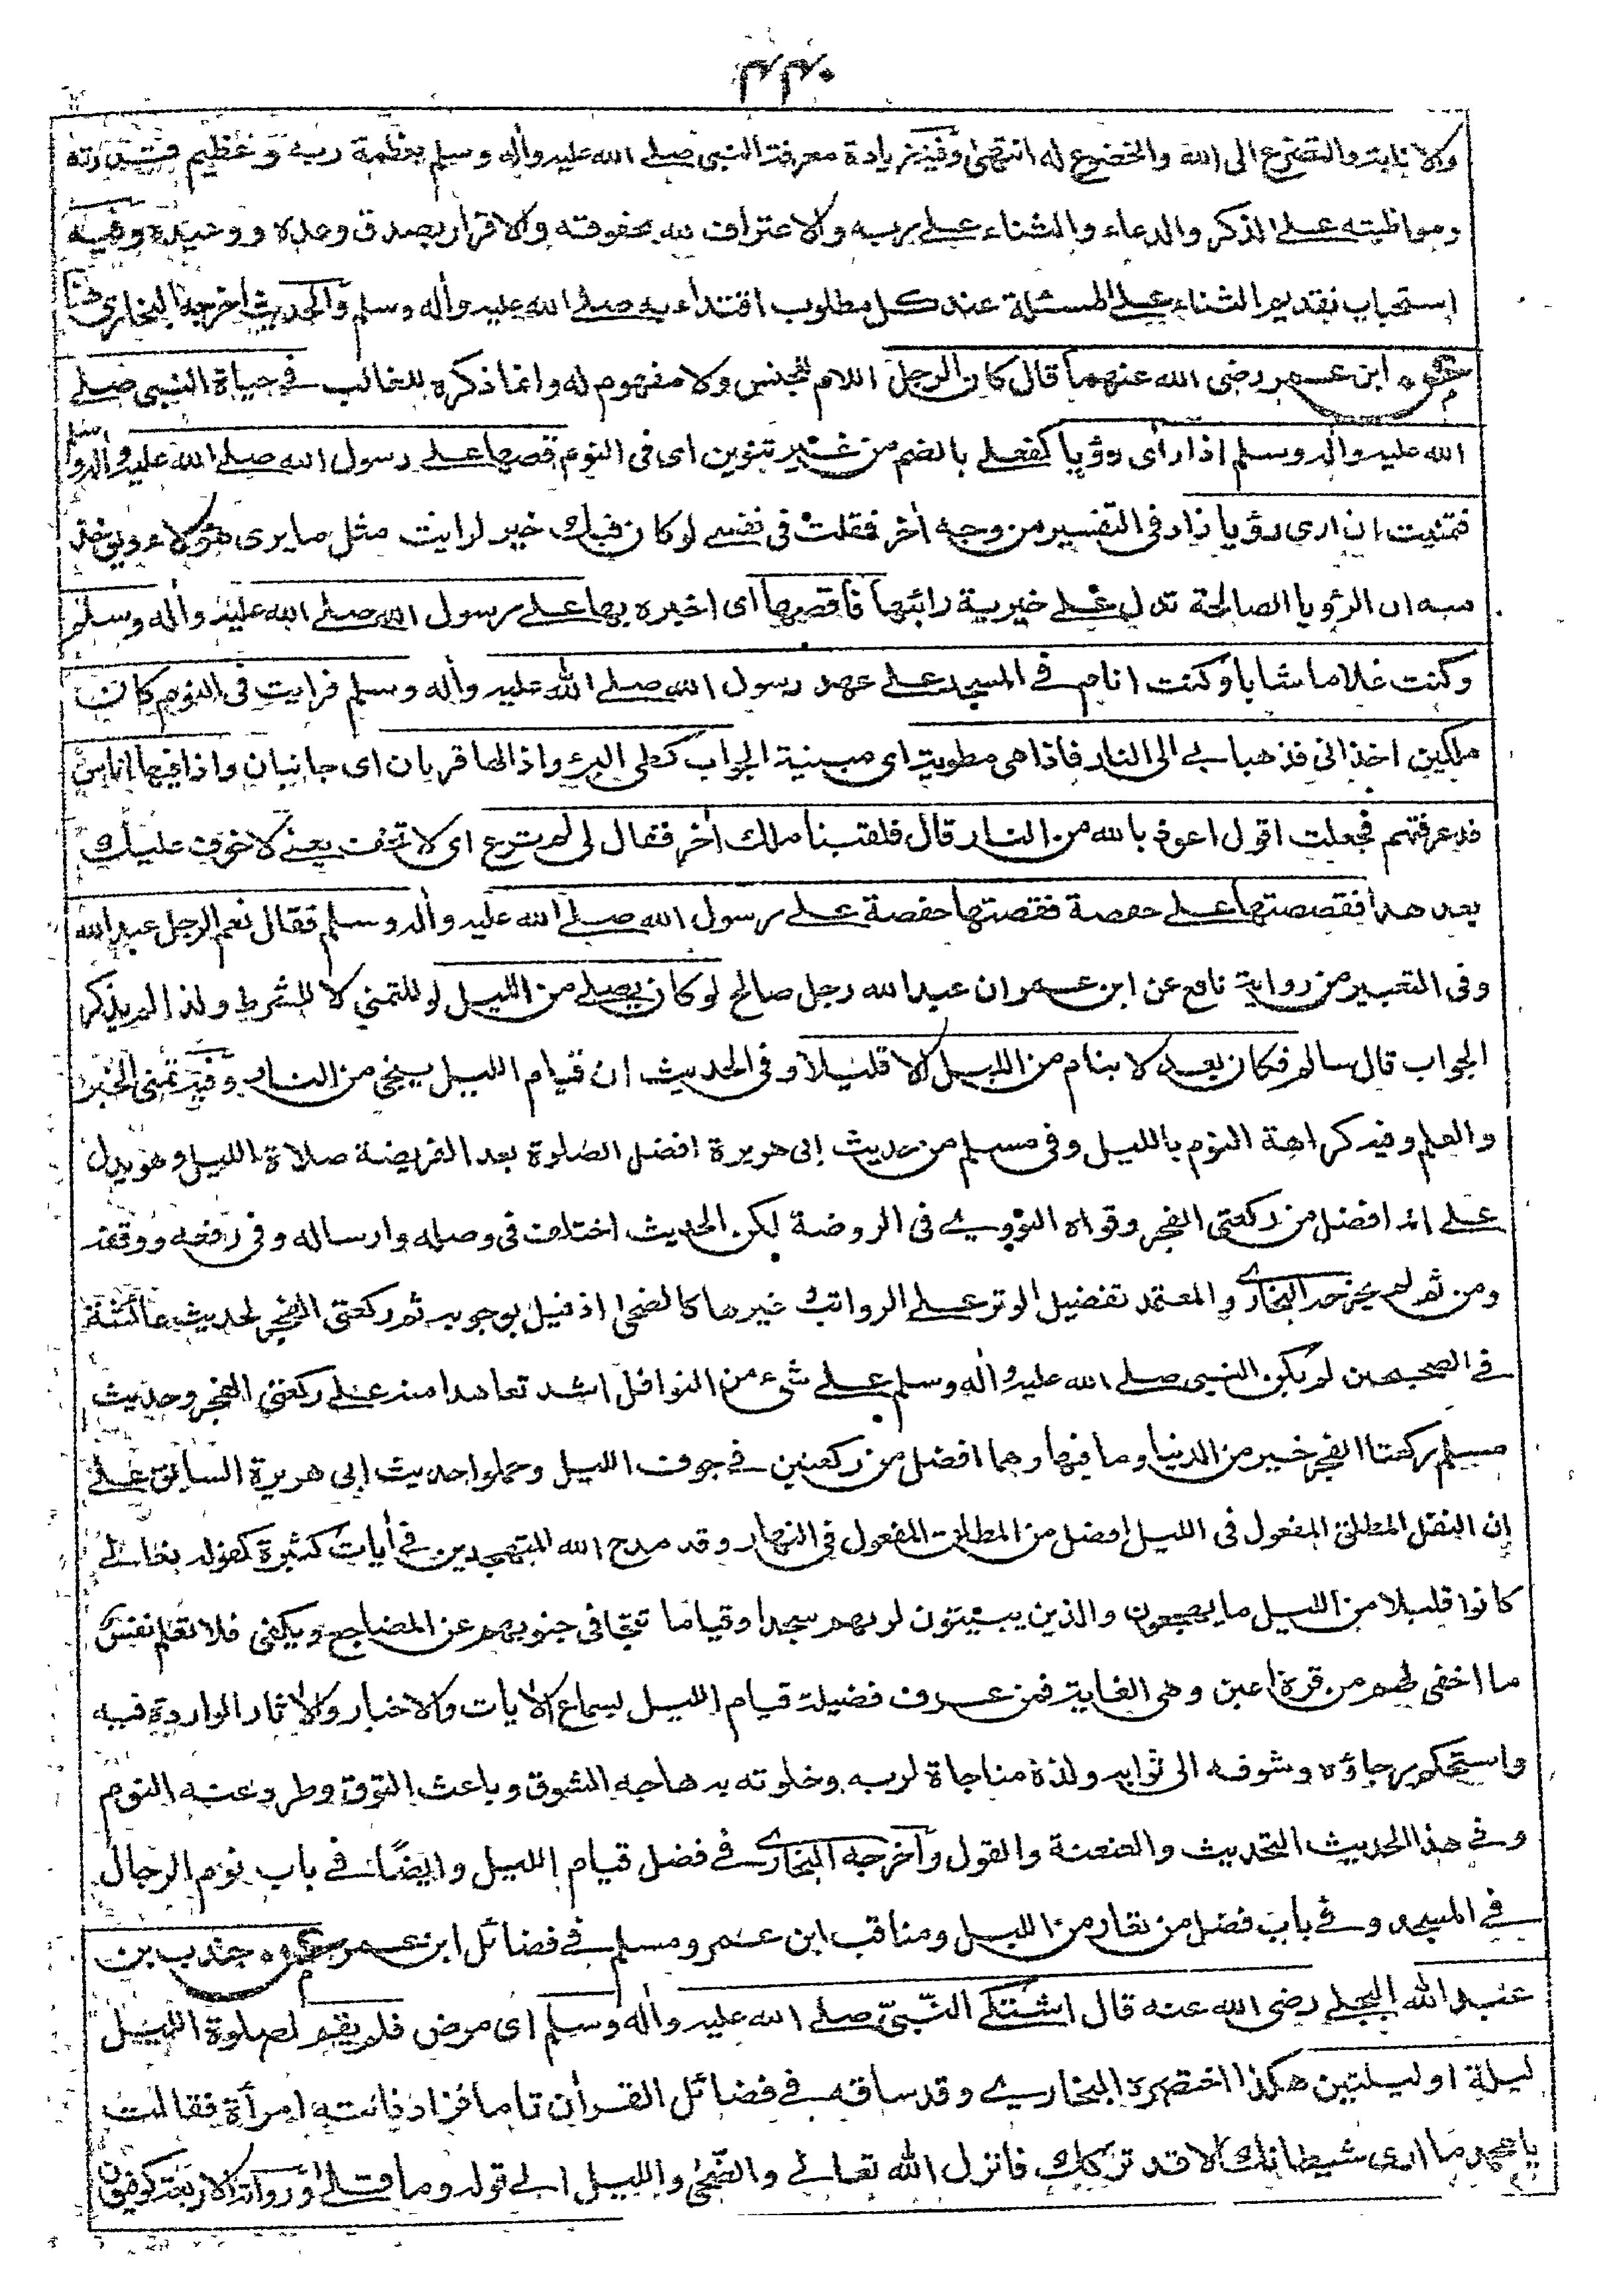 ٤٤٠
والانابة والتضرع الى الله والخضوع له انتهى وفيه زيادة معرفة النبى صلى الله عليه واله وسلم بعظمة ربه وعظيم قدرته
ومواظبته على الذكر والدعاء والثناء على ربه والاعتراف لله بحقوقه والاقرار بصدق وعده ووعيده وفيه
استحباب تقديم الثناء على المسئلة عند كل مطلوب اقتداء به صلى الله عليه واله وسلم والحديث اخرجه البخارى
عن ابن عمر رضى الله عنهما قال كان الرجل اللام للجنس ولا مفهوم له وانما ذكره للغالب فى حياة النبى صلى
الله عليه واله وسلم اذا راى رؤيا كفعلى بالضم من غير تنوين اى فى النوم قصها على رسول الله صلى الله عليه واله وسلم
فتمنيت ان ارى رؤيا زاد فى التفسير من وجه أخر فقلت فى نفسى لو كان فيك خير لرايت مثل ما يرى هؤلاء ويؤخذ
منه ان الرؤيا الصالحة تدل على خيرية رائيها فاقصها اى اخبره بها على رسول الله صلى الله عليه واله وسلم
وكنت غلاما شابا وكنت انام فى المسجد على عهد رسول الله صلى الله عليه واله وسلم فرايت فى النوم كان
ملكين اخذانى فذهبا بى الى النار فاذا هى مطوية اى مبنية الجواب كطى البئر واذا لها قرنان اى جانبان واذا فيها اناس
قد عرفتهم فجعلت اقول اعوذ بالله من النار قال فلقينا ملك أخر فقال لى لم ترع اى لا تخف يعنى لا خوف عليك
بعد هذا فقصصتها على حفصة فقصتها حفصة على رسول الله صلى الله عليه واله وسلم فقال نعم الرجل عبد الله
وفى التعبير من رواية نافع عن ابن عمر ان عبد الله رجل صالح لو كان يصلى من الليل لو للتمنى لا للشرط ولذا لم يذكر
الجواب قال سالم فكان بعد لا ينام من الليل الا قليلا وفى الحديث ان قيام الليل ينجى من النار وفيه تمنى الخير
والعلم وفيه كراهة النوم بالليل وفى مسلم من حديث ابى هريرة افضل الصلوة بعد الفريضة صلاة الليل وهو يدل
على انه افضل من ركعتى الفجر وقواه النووى فى الروضة لكن الحديث اختلف فى وصله وارساله وفى رفعه ووقفه
ومن ثم لم يخرجه البخارى والمعتمد تفضيل الوتر على الرواتب غيرها كالضحى اذ قيل بوجوبه ثم ركعتى الفجر لحديث عائشة
فى الصحيحين لم يكن النبى صلى الله عليه واله وسلم على شىء من النوافل اشد تعاهدا منه على ركعتى الفجر وحديث
مسلم ركعتا الفجر خير من الدنيا وما فيها وهما افضل من ركعتين فى جوف الليل وحملوا حديث ابى هريرة السابق على
ان النفل المطلق المفعول فى الليل افضل من المطلق المفعول فى النهار وقد مدح الله المتهجدين فى أيات كثيرة كقوله تعالى
كانوا قليلا من الليل ما يهجعون والذين يبيتون لربهم سجدا وقياما تتجافى جنوبهم عن المضاجع ويكفى فلا تعلم نفس
ما اخفى لهم من قرة اعين وهى الغاية فمن عرف فضيلة قيام الليل بسماع الأيات والاخبار والأثار الواردة فيه
واستحكم رجاؤه وشوقه الى ثوابه ولذة مناجاة لربه وخلوته به هاجه الشوق وباعث التوق وطرد عنه النوم
وفى هذا الحديث التحديث والعنعنة والقول واخرجه البخارى فى فضل قيام الليل وايضًا فى باب نوم الرجال
فى المسجد وفى باب فضل من تعار من الليل ومناقب ابن عمر ومسلم فى فضائل ابن عمر عن جندب بن
عبد الله البجلى رضى الله عنه قال اشتكى النّبىّ صلى الله عليه واله وسلم اى مرض فلم يقم لصلوة الليل
ليلة او ليلتين هكذا اختصره البخارى وقد ساقه فى فضائل القرأن تاما فزاد فاتته امرأة فقالت
يا محمد ما ارى شيطانك الا قد تركك فانزل الله تعالى والضحى والليل الى قوله وما قلى ورواته الاربعة كوفيون